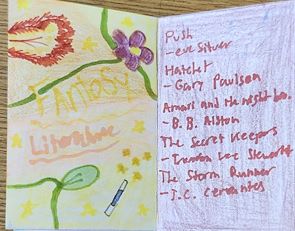 Fantasy
Literature
Push
- eve Silver
Hatchet
- Gary Paulson
Amari and the night bro.
- B. B. Alston
The Secret Keepers
- Trenton Lee Stewart
The Storm Runner
- J.C. Cervantes